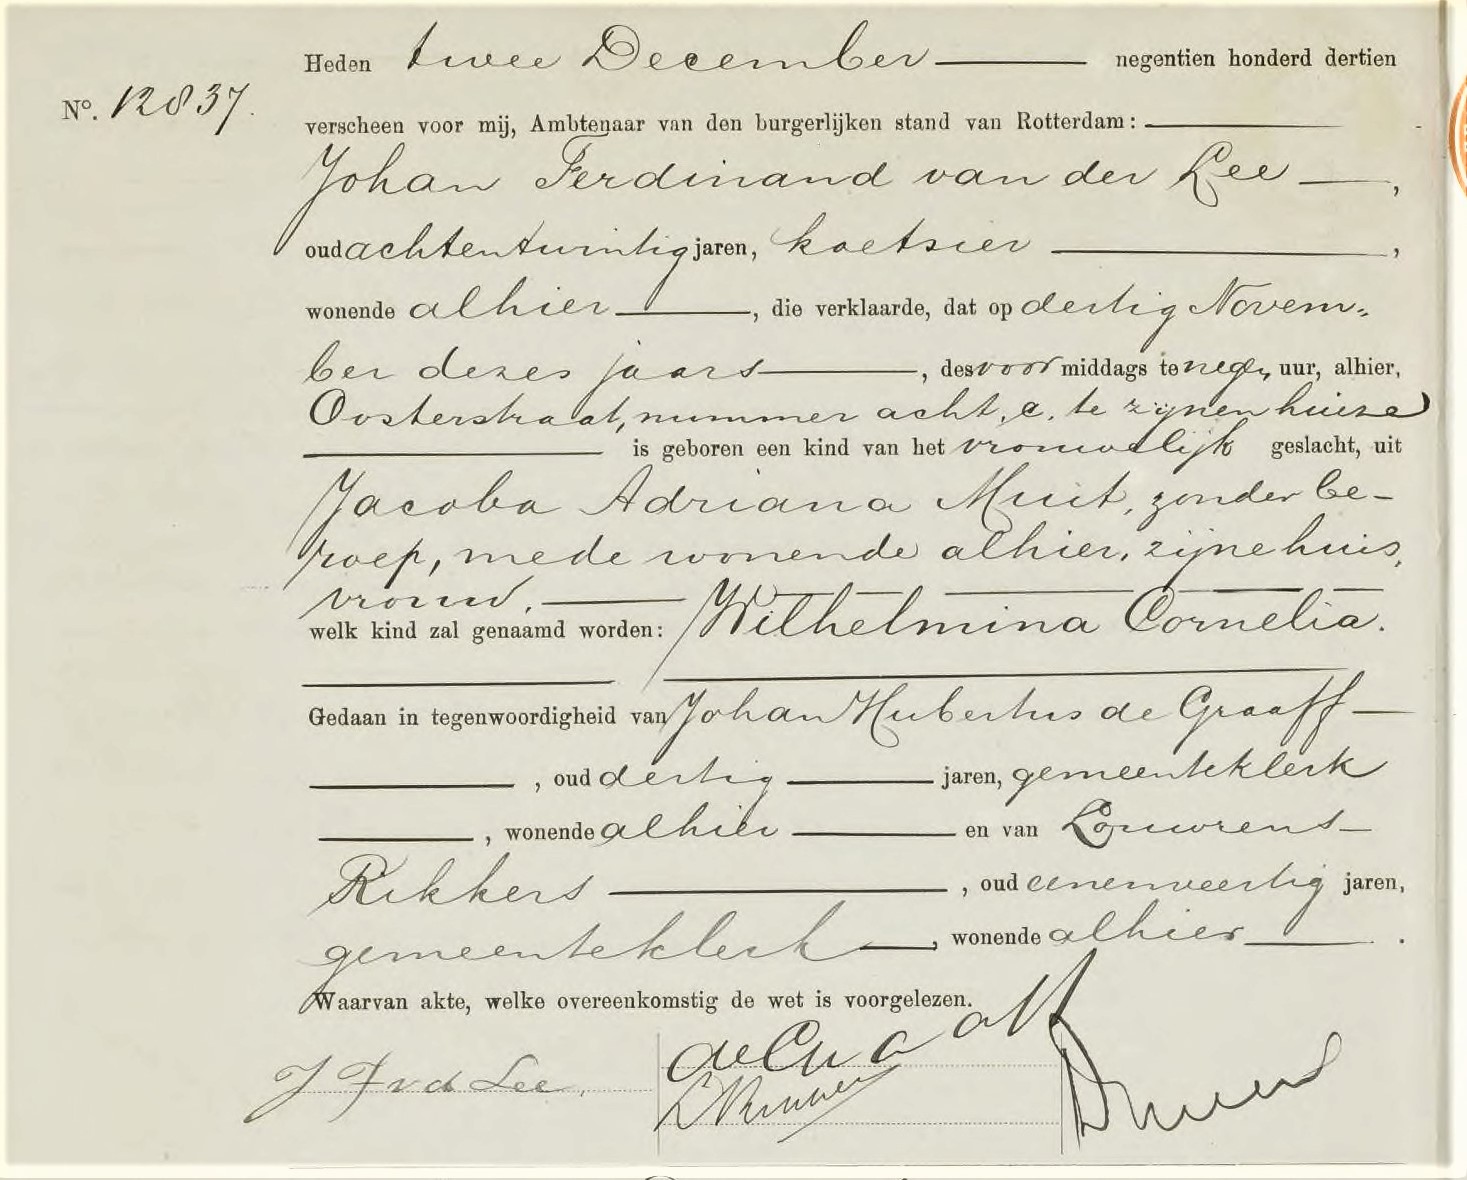 Heden twee December negentien honderd dertien
No. 12837.
verscheen voor mij, Ambtenaar van den burgerlijken stand van Rotterdam:
Johan Ferdinand van der Lee,
oud achtentwintig jaren, koetsier,
wonende alhier, die verklaarde, dat op dertig Novem„
ber dezes jaars, des voor middags te negen uur, alhier,
Oosterstraat, nummer acht, c. te zijnen huize
is geboren een kind van het vrouwelijk geslacht, uit
Jacoba Adriana Muit, zonder be-
roep, mede wonende alhier, zijne huis,
vrouw.
welk kind zal genaamd worden: Wilhelmina Cornelia.
Gedaan in tegenwoordigheid van Johan Hubertus de Graaff
, oud dertig jaren, gemeenteklerk
, wonende alhier en van Louwrens
Rikkers, oud eenenveertig jaren,
gemeenteklerk, wonende alhier.
Waarvan akte, welke overeenkomstig de wet is voorgelezen.
de Graaff
J F v d Lee